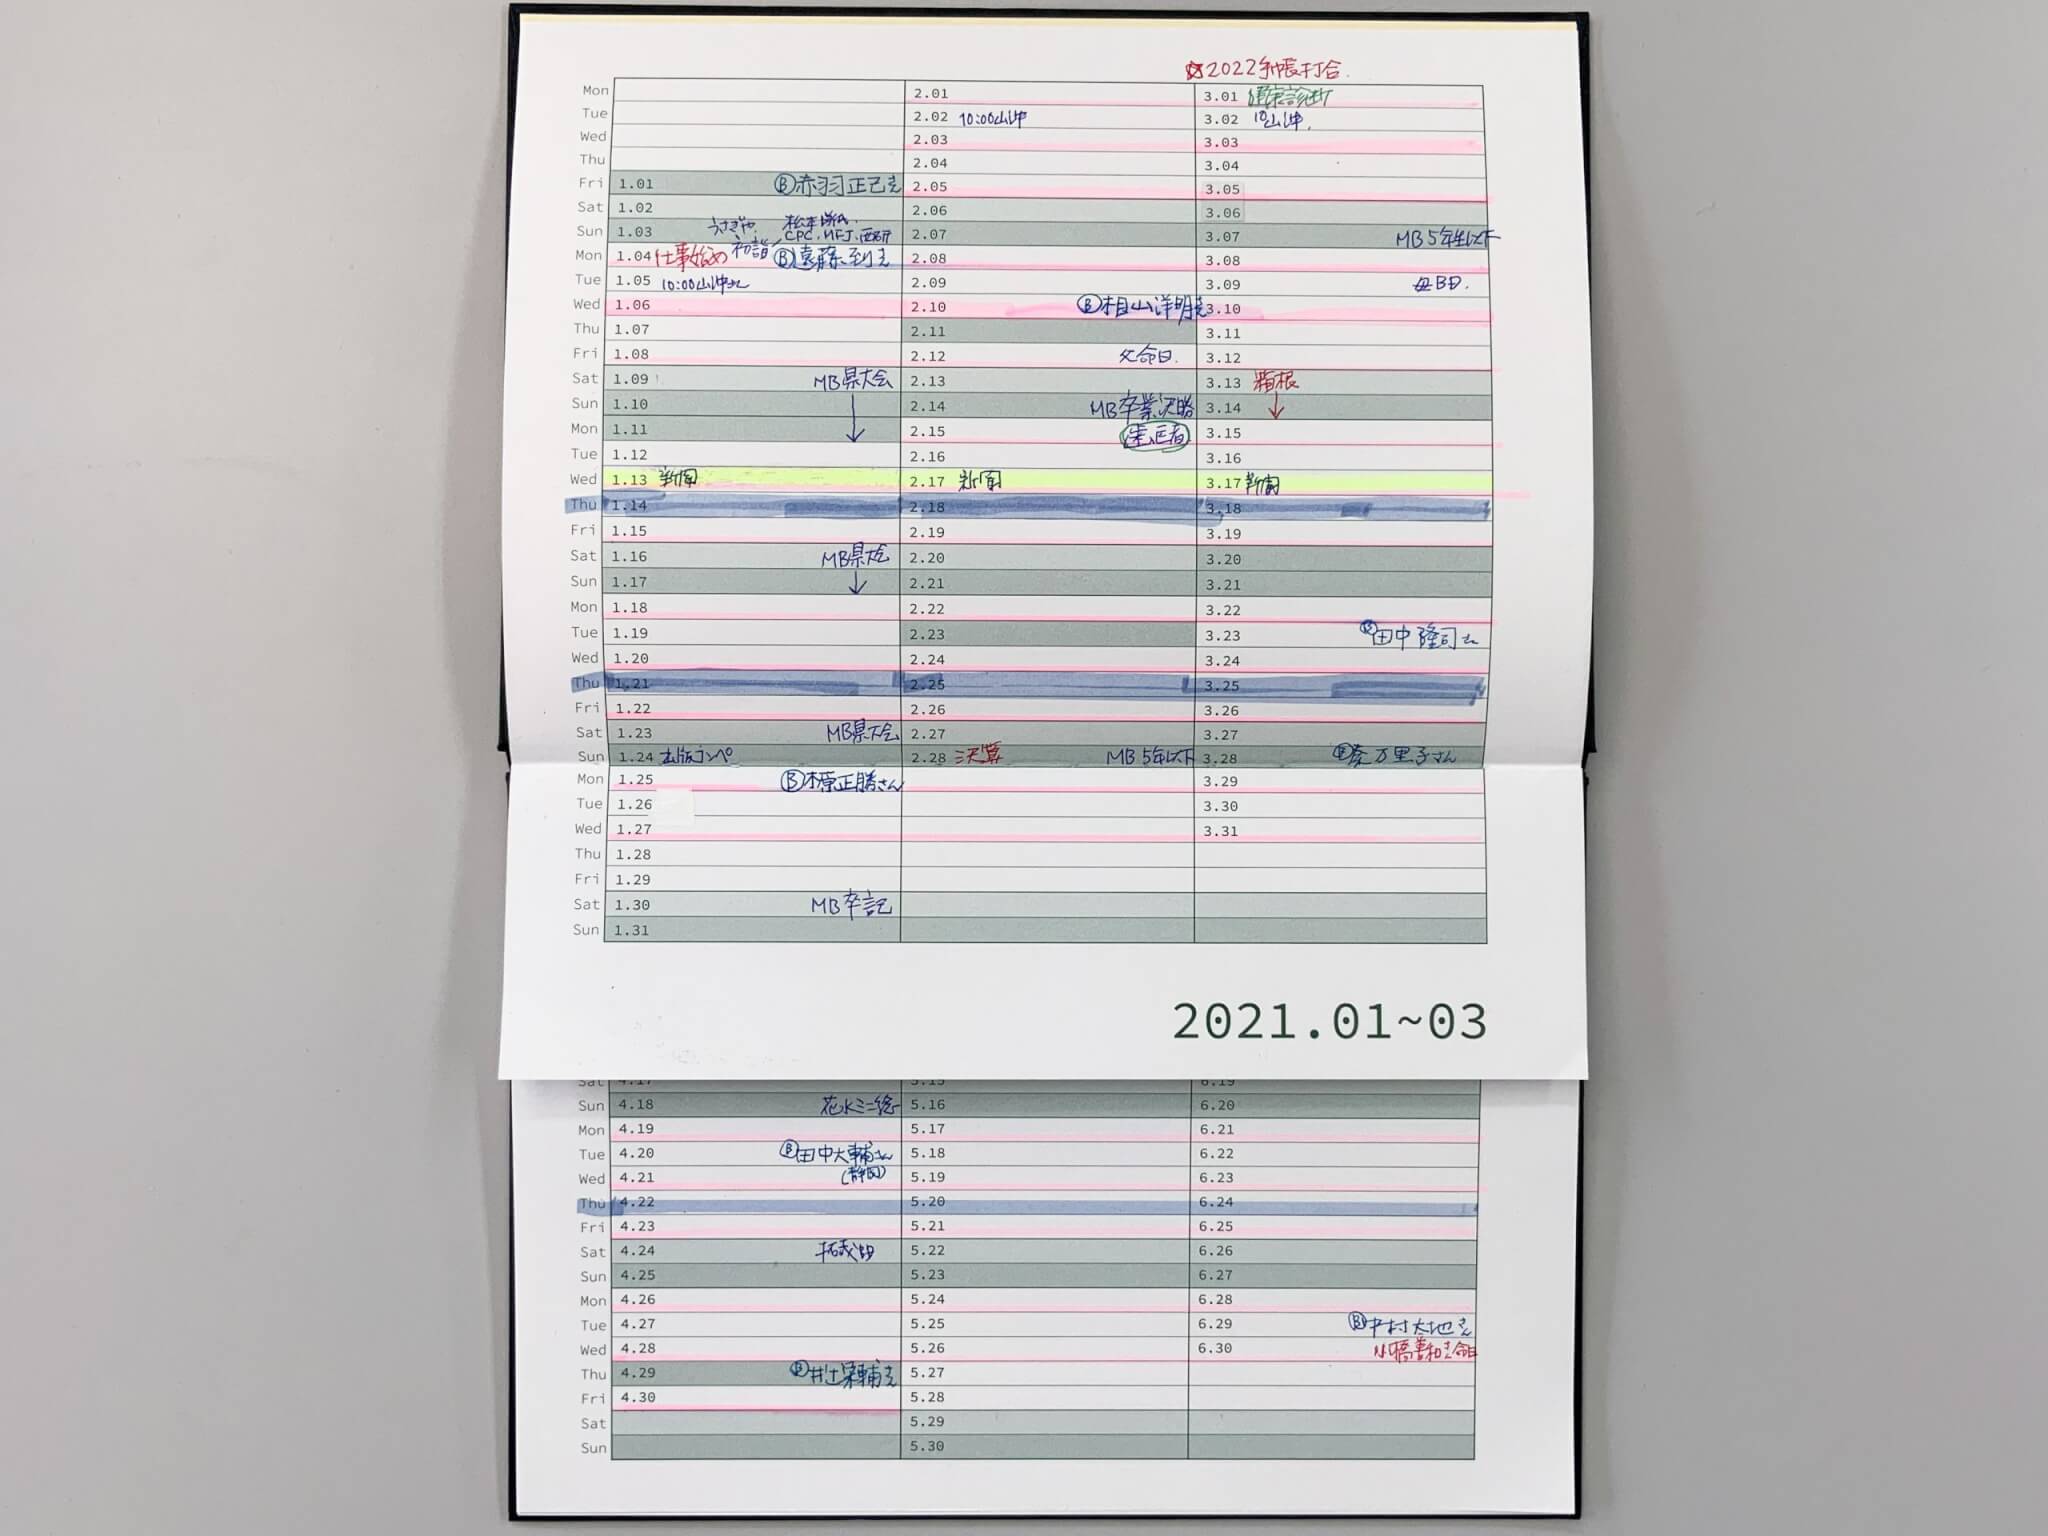 ☆2022手帳打合
Mon 2.01 3.01 健康診断
Tue 2.02 10:00山沖 3.02 10山沖
Wed 2.03 3.03
Thu 2.04 3.04
Fri 1.01 Ⓑ赤羽正己さん 2.05 3.05
Sat 1.02 2.06 3.06
Sun 1.03 うさぎや 2.07 3.07 MB5年生以下
CPC.MFJ.
Mon 1.04 仕事始め 初詣 Ⓑ遠藤 2.08 3.08
Tue 1.05 10:00山沖 2.09 3.09 母BD.
Wed 1.06 2.10 Ⓑ相山洋明さん 3.10
Thu 1.07 2.11 3.11
Fri 1.08 2.12 父命日. 3.12
Sat 1.09 MB県大会 2.13 3.13 箱根
Sun 1.10 2.14 MB卒業決勝 3.14
Mon 1.11 2.15 3.15
Tue 1.12 2.16 3.16
Wed 1.13 新聞 2.17 新聞 3.17 新聞
Thu 1.14 2.18 3.18
Fri 1.15 2.19 3.19
Sat 1.16 MB県大会 2.20 3.20
Sun 1.17 2.21 3.21
Mon 1.18 2.22 3.22
Tue 1.19 2.23 3.23 Ⓑ田中隆司さん
Wed 1.20 2.24 3.24
Thu 1.21 2.25 3.25
Fri 1.22 2.26 3.26
Sat 1.23 MB県大会 2.27 3.27
Sun 1.24 出版コンペ 2.28 決算 MB5年以下 3.28 万里子さん
Mon 1.25 Ⓑ 正勝さん 3.29
Tue 1.26 3.30
Wed 1.27 3.31
Thu 1.28
Fri 1.29
Sat 1.30 MB卒記
Sun 1.31
2021.01~03
Sat 4.17 5.15 6.19
Sun 4.18 5.16 6.20
Mon 4.19 5.17 6.21
Tue 4.20 Ⓑ田中大輔さん 5.18 6.22
Wed 4.21 (静岡) 5.19 6.23
Thu 4.22 5.20 6.24
Fri 4.23 5.21 6.25
Sat 4.24 5.22 6.26
Sun 4.25 5.23 6.27
Mon 4.26 5.24 6.28
Tue 4.27 5.25 6.29 Ⓑ中村大地さん
Wed 4.28 5.26 6.30 小橋善和さん命日
Thu 4.29 5.27
Fri 4.30 5.28
Sat 5.29
Sun 5.30